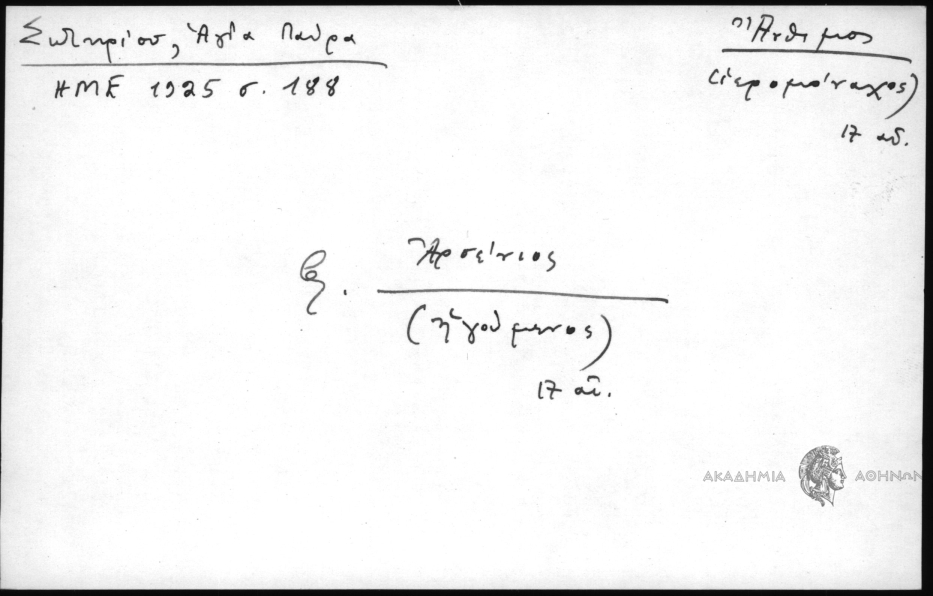 Σωτηρίου, Ἁγία Μαύρα
ΗΜΕ 1925 σ. 188
Ἄνθιμος
(ἱερομόναχος)
17 αἰ.
Ἀρσένιος
(ἡγούμενος)
17 αἰ.
ΑΚΑΔΗΜΙΑ ΑΘΗΝΩΝ